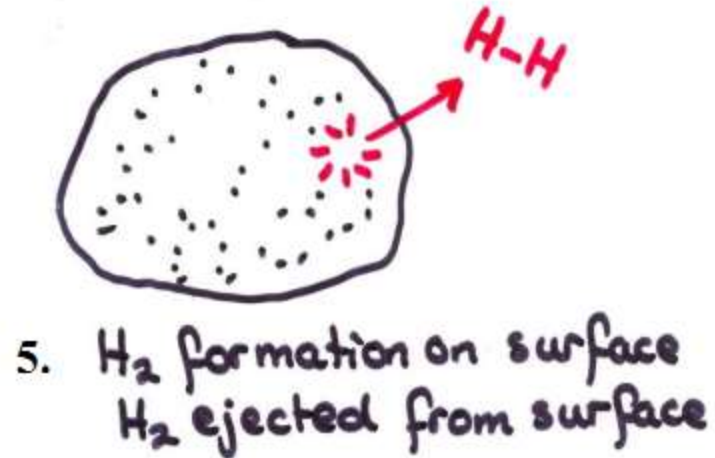 H-H
5. H₂ formation on surface
H₂ ejected from surface